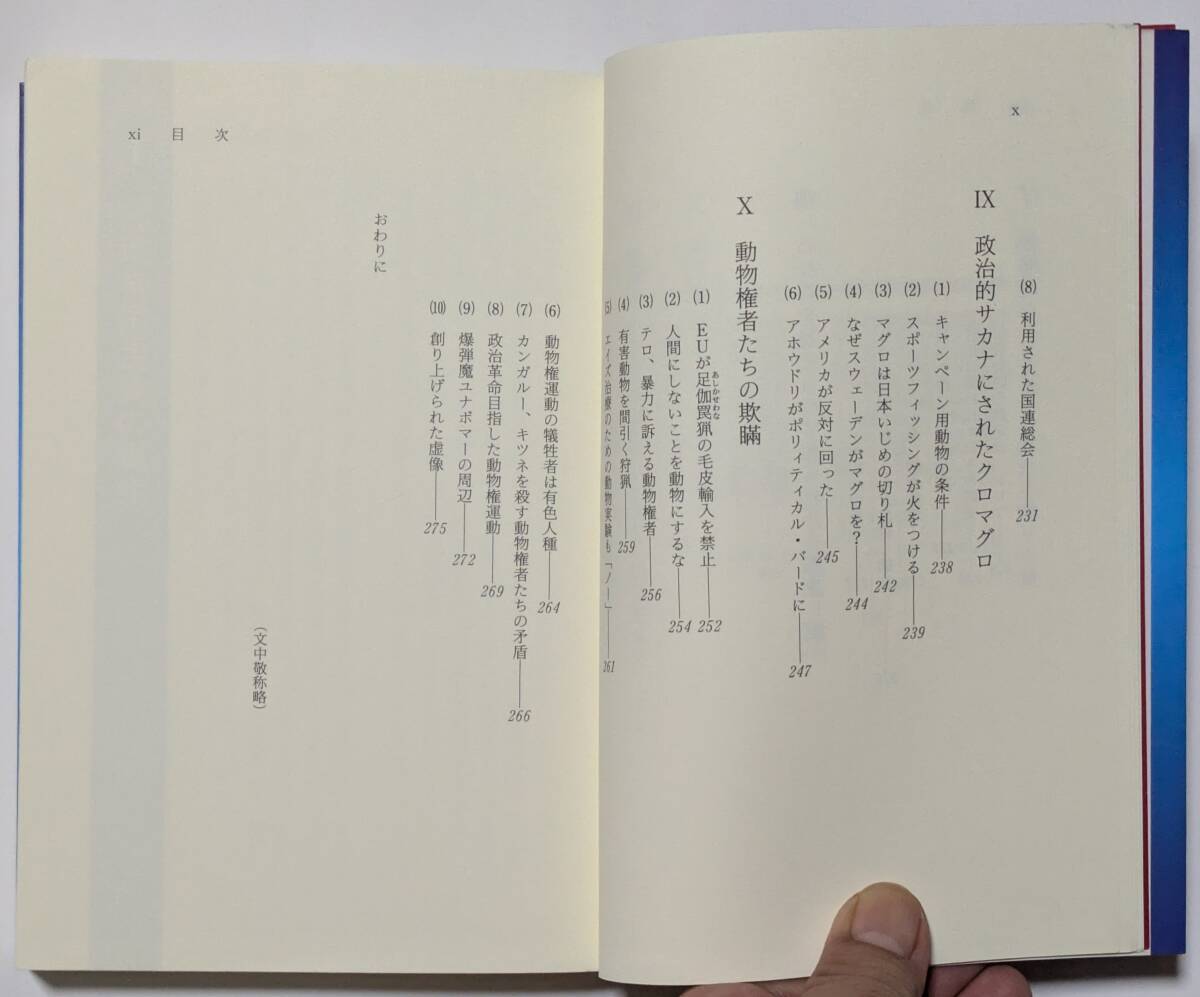 x
(8) 利用された国連総会――231
IX 政治的サカナにされたクロマグロ
(1) キャンペーン用動物の条件――238
(2) スポーツフィッシングが火をつける――239
(3) マグロは日本いじめの切り札――242
(4) なぜスウェーデンがマグロを?――244
(5) アメリカが反対に回った――245
(6) アホウドリがポリィティカル・バードに――247
X 動物権者たちの欺瞞
(1) EUが足伽罠猟の毛皮輸入を禁止――252
あしかせわな
(2) 人間にしないことを動物にするな――254
(3) テロ、暴力に訴える動物権者――256
(4) 有害動物を間引く狩猟――259
(5) エイズ治療のための動物実験も「ノー」――261
xi 目次
(6) 動物権運動の犠牲者は有色人種――264
(7) カンガルー、キツネを殺す動物権者たちの矛盾――266
(8) 政治革命目指した動物権運動――269
(9) 爆弾魔ユナボマーの周辺――272
(10) 創り上げられた虚像――275
おわりに
(文中敬称略)